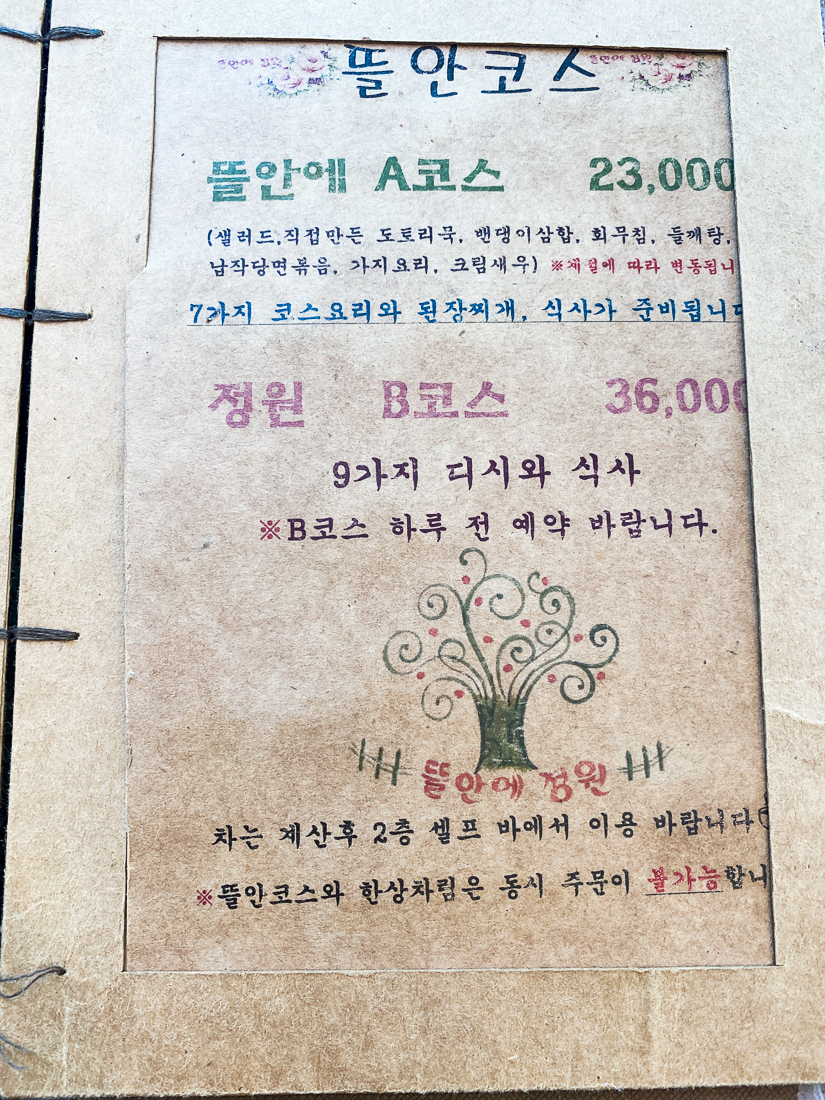 뜰안에 정원 뜰안코스 뜰안에 정원
뜰안에 A코스 23,000
(샐러드,직접만든 도토리묵, 밴댕이삼합, 회무침, 들깨탕,
납작당면볶음, 가지요리, 크림새우) ※계절에 따라 변동됩니
7가지 코스요리와 된장찌개, 식사가 준비됩니다
정원 B코스 36,000
9가지 디시와 식사
※B코스 하루 전 예약 바랍니다.
뜰안에 정원
차는 계산후 2층 셀프 바에서 이용 바랍니다
※뜰안코스와 한상차림은 동시 주문이 불가능합니